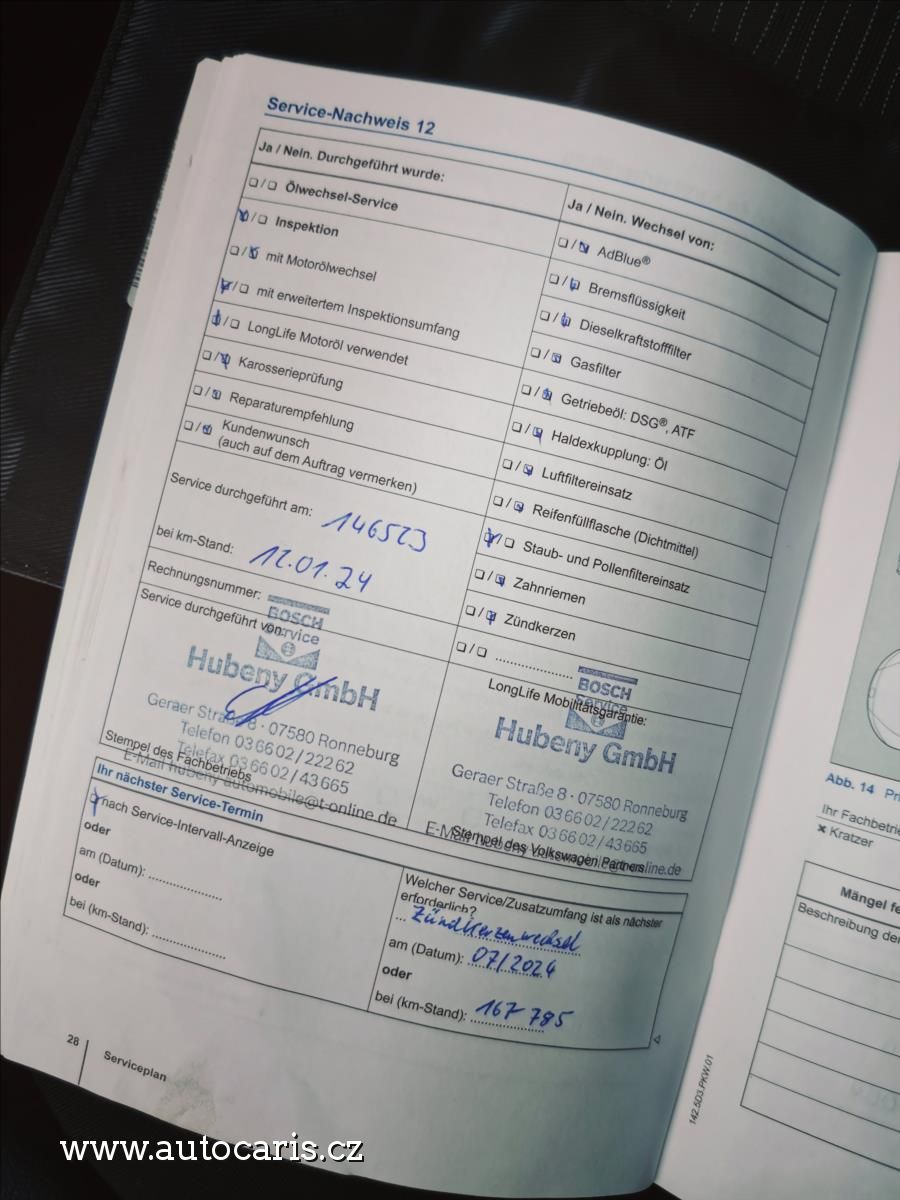 Service-Nachweis 12
Ja / Nein. Durchgeführt wurde:
❏ / ❏ Ölwechsel-Service
❏ / ❏ Inspektion
❏ / ❏ mit Motorölwechsel
❏ / ❏ mit erweitertem Inspektionsumfang
❏ / ❏ LongLife Motoröl verwendet
❏ / ❏ Karosserieprüfung
❏ / ❏ Reparaturempfehlung
❏ / ❏ Kundenwunsch
(auch auf dem Auftrag vermerken)
Service durchgeführt am: 146523
bei km-Stand: 12.01.24
Rechnungsnummer:
Service durchgeführt von:
BOSCH
Service
Hubeny GmbH
Geraer Straße 8 · 07580 Ronneburg
Telefon 03 66 02 / 222 62
Telefax 03 66 02 / 43 665
E-Mail hubeny automobile@t-online.de
Stempel des Fachbetriebs
Ja / Nein. Wechsel von:
❏ / ❏ AdBlue®
❏ / ❏ Bremsflüssigkeit
❏ / ❏ Dieselkraftstofffilter
❏ / ❏ Gasfilter
❏ / ❏ Getriebeöl: DSG®, ATF
❏ / ❏ Haldexkupplung: Öl
❏ / ❏ Luftfiltereinsatz
❏ / ❏ Reifenfüllflasche (Dichtmittel)
❏ / ❏ Staub- und Pollenfiltereinsatz
❏ / ❏ Zahnriemen
❏ / ❏ Zündkerzen
❏ / ❏ ....................
LongLife Mobilitätsgarantie:
BOSCH
Service
Hubeny GmbH
Geraer Straße 8 · 07580 Ronneburg
Telefon 03 66 02 / 222 62
Telefax 03 66 02 / 43 665
Stempel des Volkswagen Partners
Ihr nächster Service-Termin
❏ nach Service-Intervall-Anzeige
oder
am (Datum): ....................
oder
bei (km-Stand): ....................
Welcher Service/Zusatzumfang ist als nächster
erforderlich?
... Zündkerzenwechsel
am (Datum): 07/2024
oder
bei (km-Stand): 167 785
28
Serviceplan
142.5D3.PKW.01
Abb. 14
Ihr Fachbetrie
✕ Kratzer
Mängel fe
Beschreibung der
www.autocaris.cz